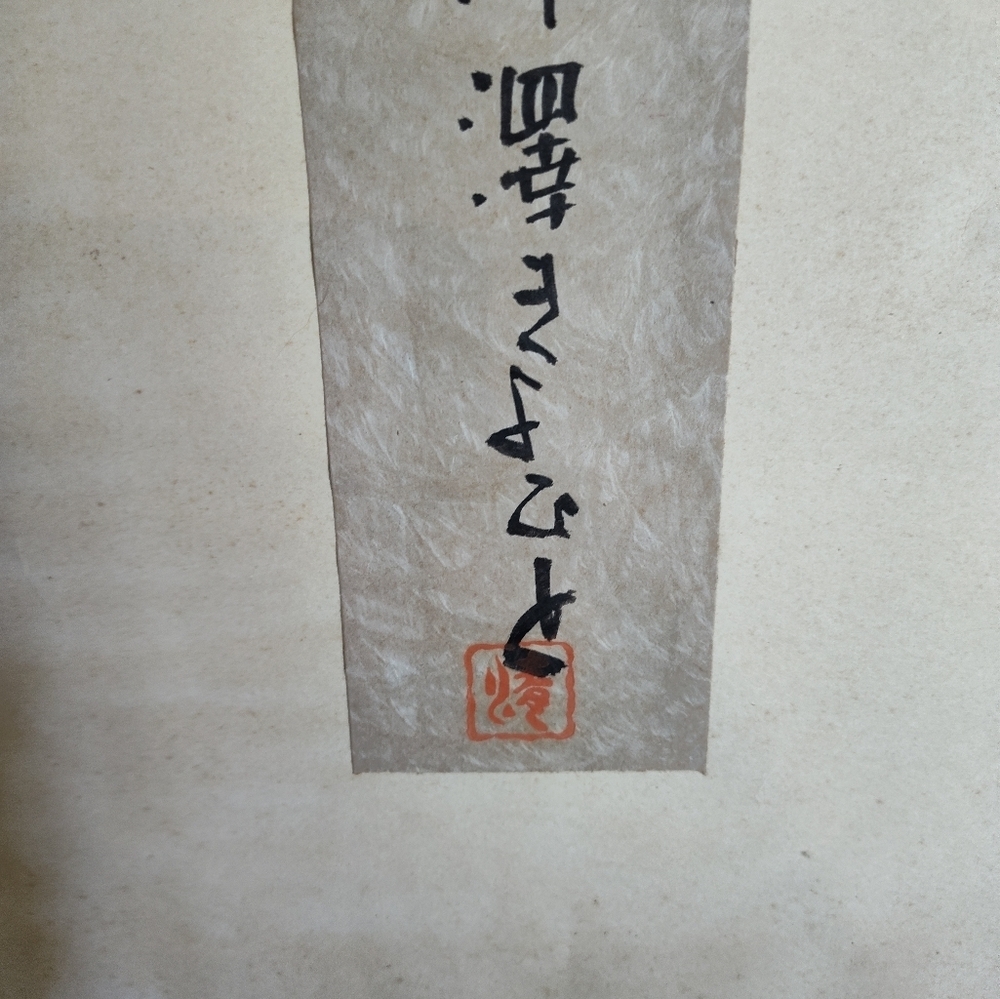 澤きよひと